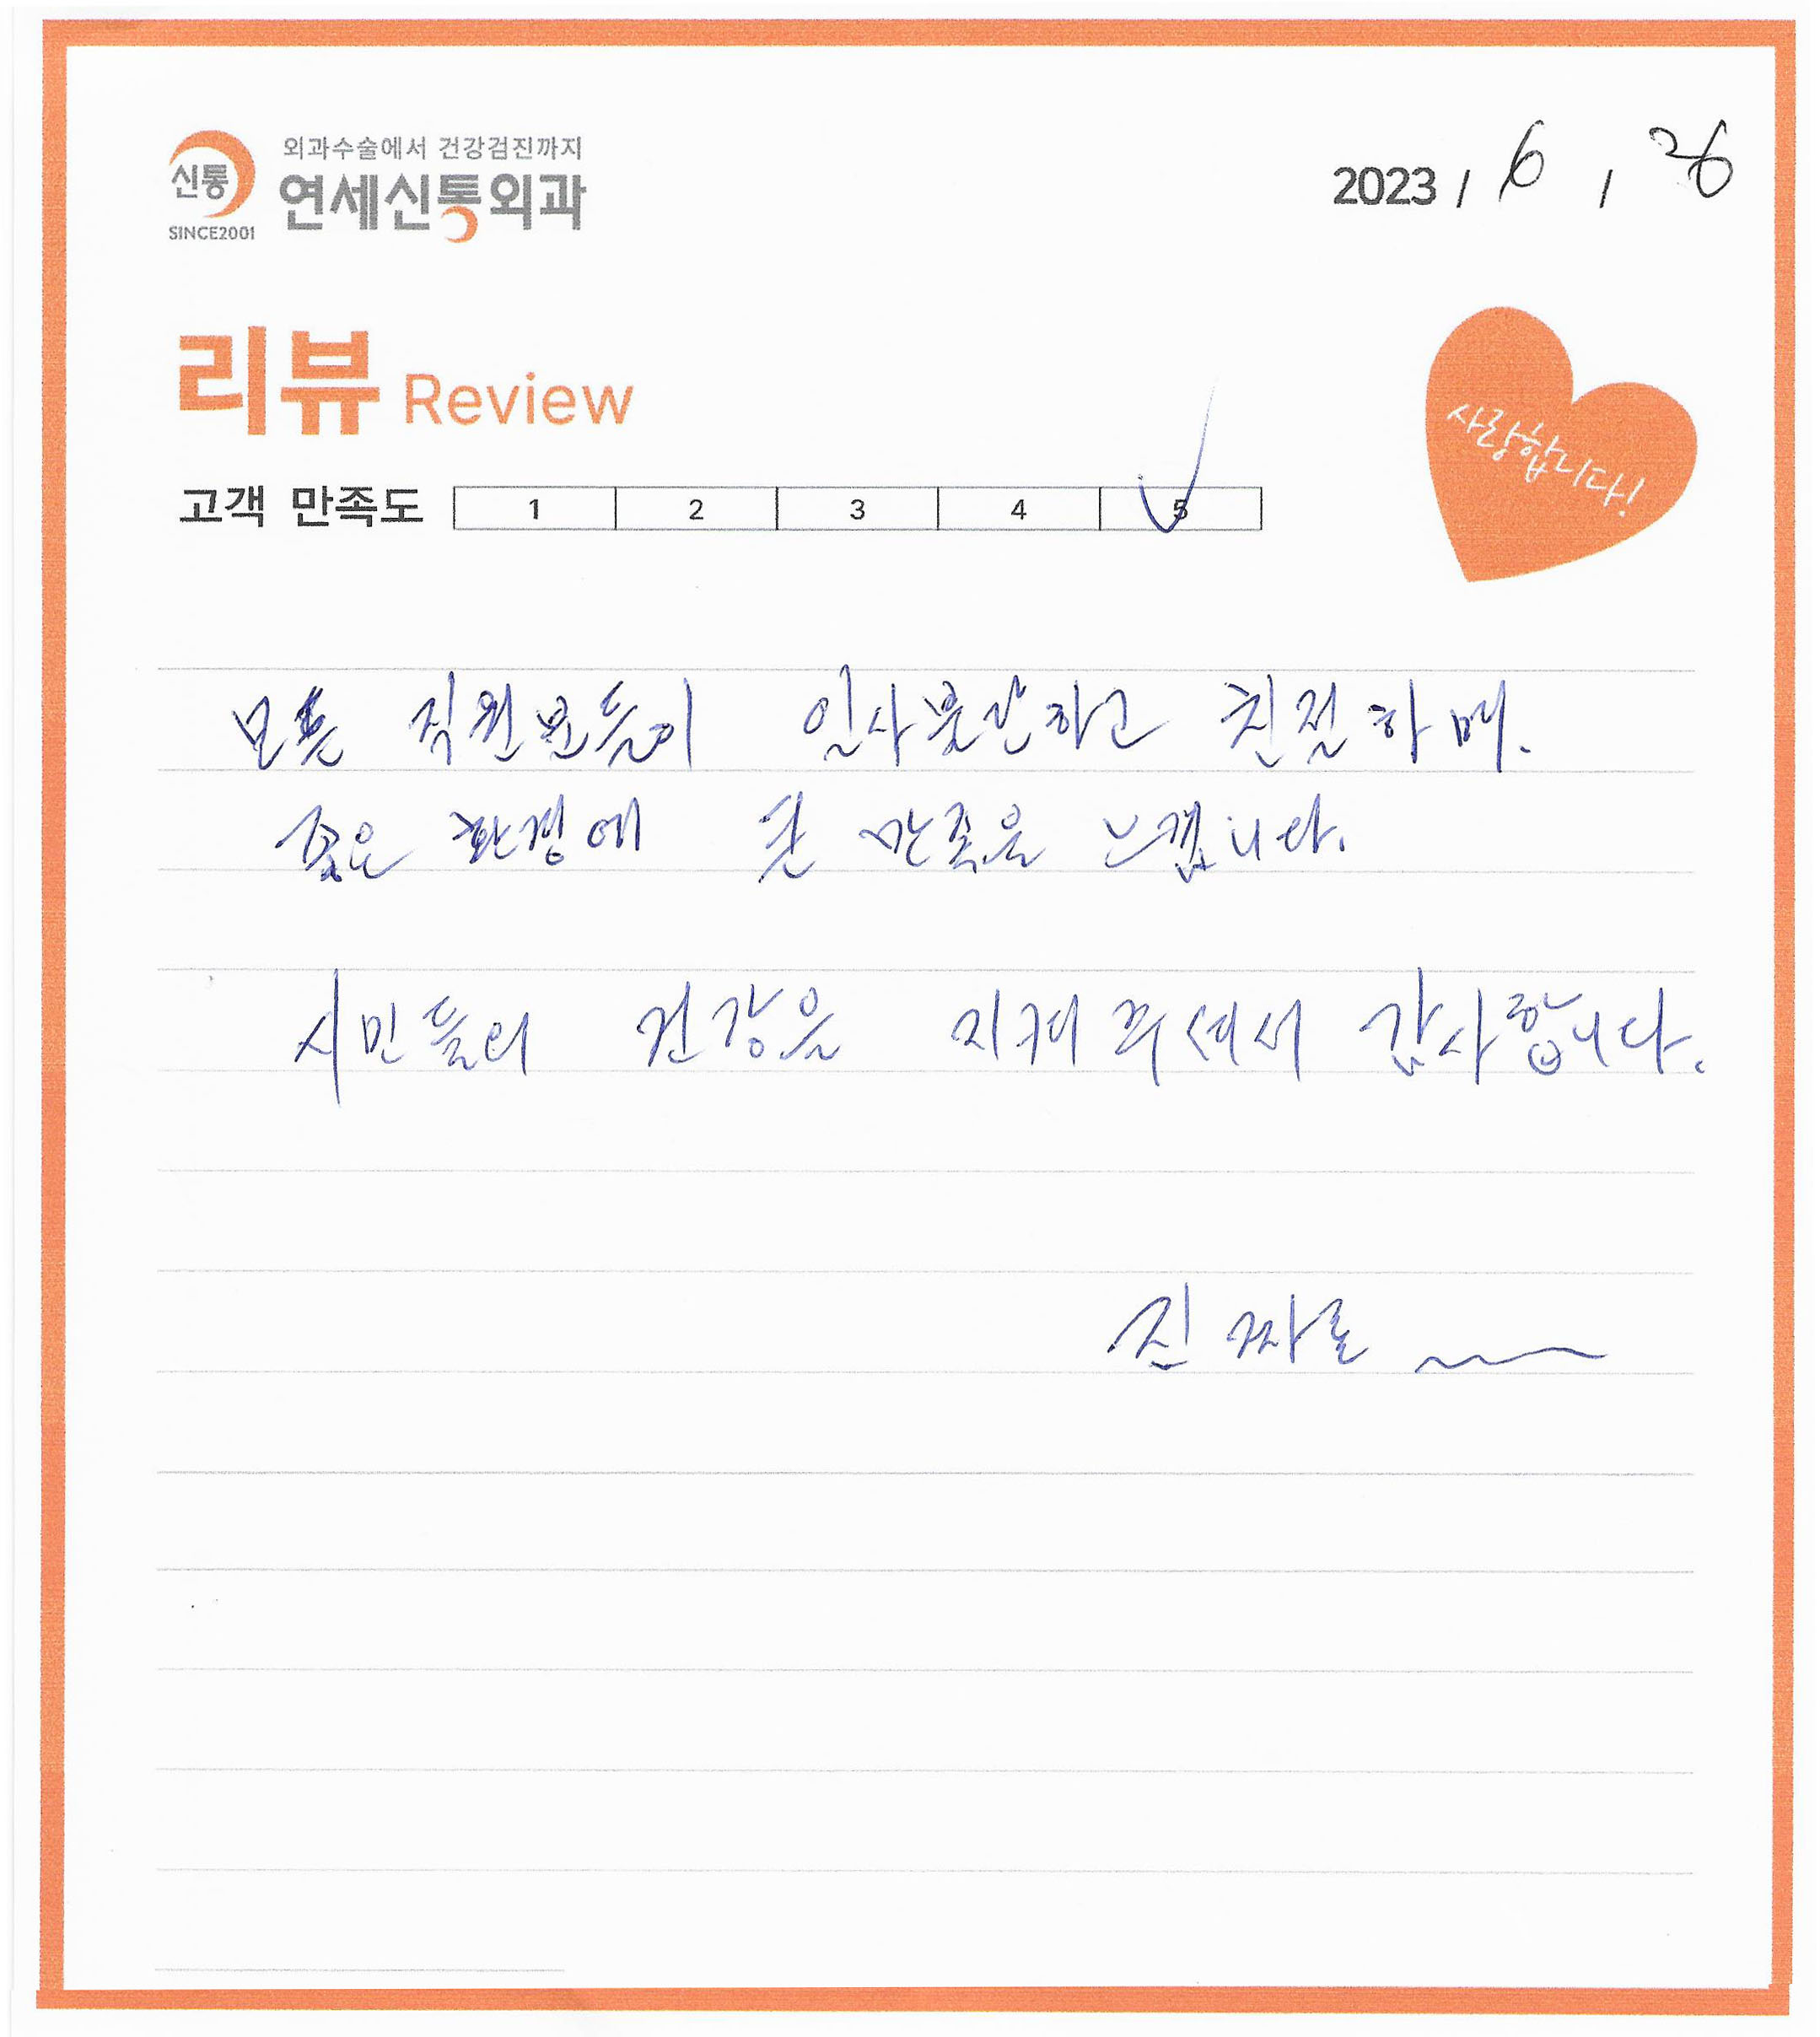 외과수술에서 건강검진까지
신통
연세신통외과
SINCE2001
2023 / 6 / 26
리뷰 Review
사랑합니다!
고객 만족도 1 2 3 4 5
모든 직원분들이 일사불란하고 친절하며.
좋은 환경에 큰 만족을 느낍니다.
시민들의 건강을 지켜 주셔서 감사합니다.
진짜로